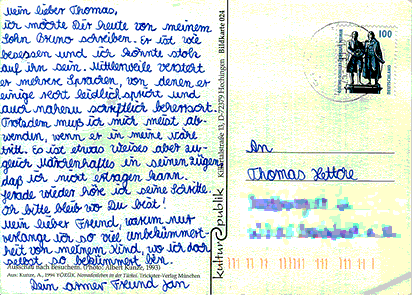 Mein lieber Thomas,
ich möchte Dir heute von meinem
Sohn Bruno schreiben. Er ist wie
besessen und ich könnte stolz
auf ihn sein. Mittlerweile versteht
er mehrere Sprachen, von denen er
einige recht leidlich spricht und
auch nahezu schriftlich beherrscht.
Trotzdem muß ich mich meist ab-
wenden, wenn er in meine Nähe
tritt. Es ist etwas Weises aber zu-
gleich Märchenhaftes in seinen Zügen,
daß ich nicht ertragen kann.
Gerade wieder höre ich seine Schritte.
Oh bitte bleib wo Du bist!
Mein lieber Freund, warum nur
verlange ich so viel Unbekümmert-
heit von meinem Kind, wo ich doch
selbst so bekümmert bin.
Ausschau nach Besuchern. (Photo: Albert Kunze, 1993)
Aus: Kunze, A., 1994 YÖRÜK. Nomadenleben in der Türkei. Trickster-Verlag München
Dein armer Freund Jan
kultur@publik
Killertalstraße 13, D-72379 Hechingen Bildkarte 024
100
DEUTSCHLAND
An
Thomas